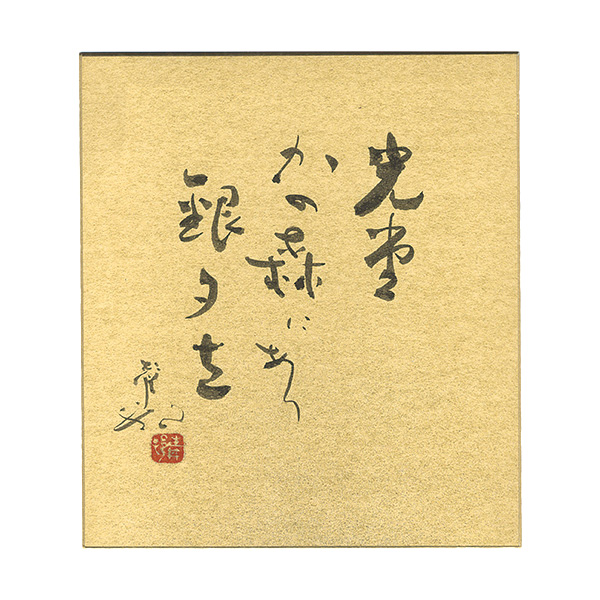 光堂
かの森にあり
銀夕立